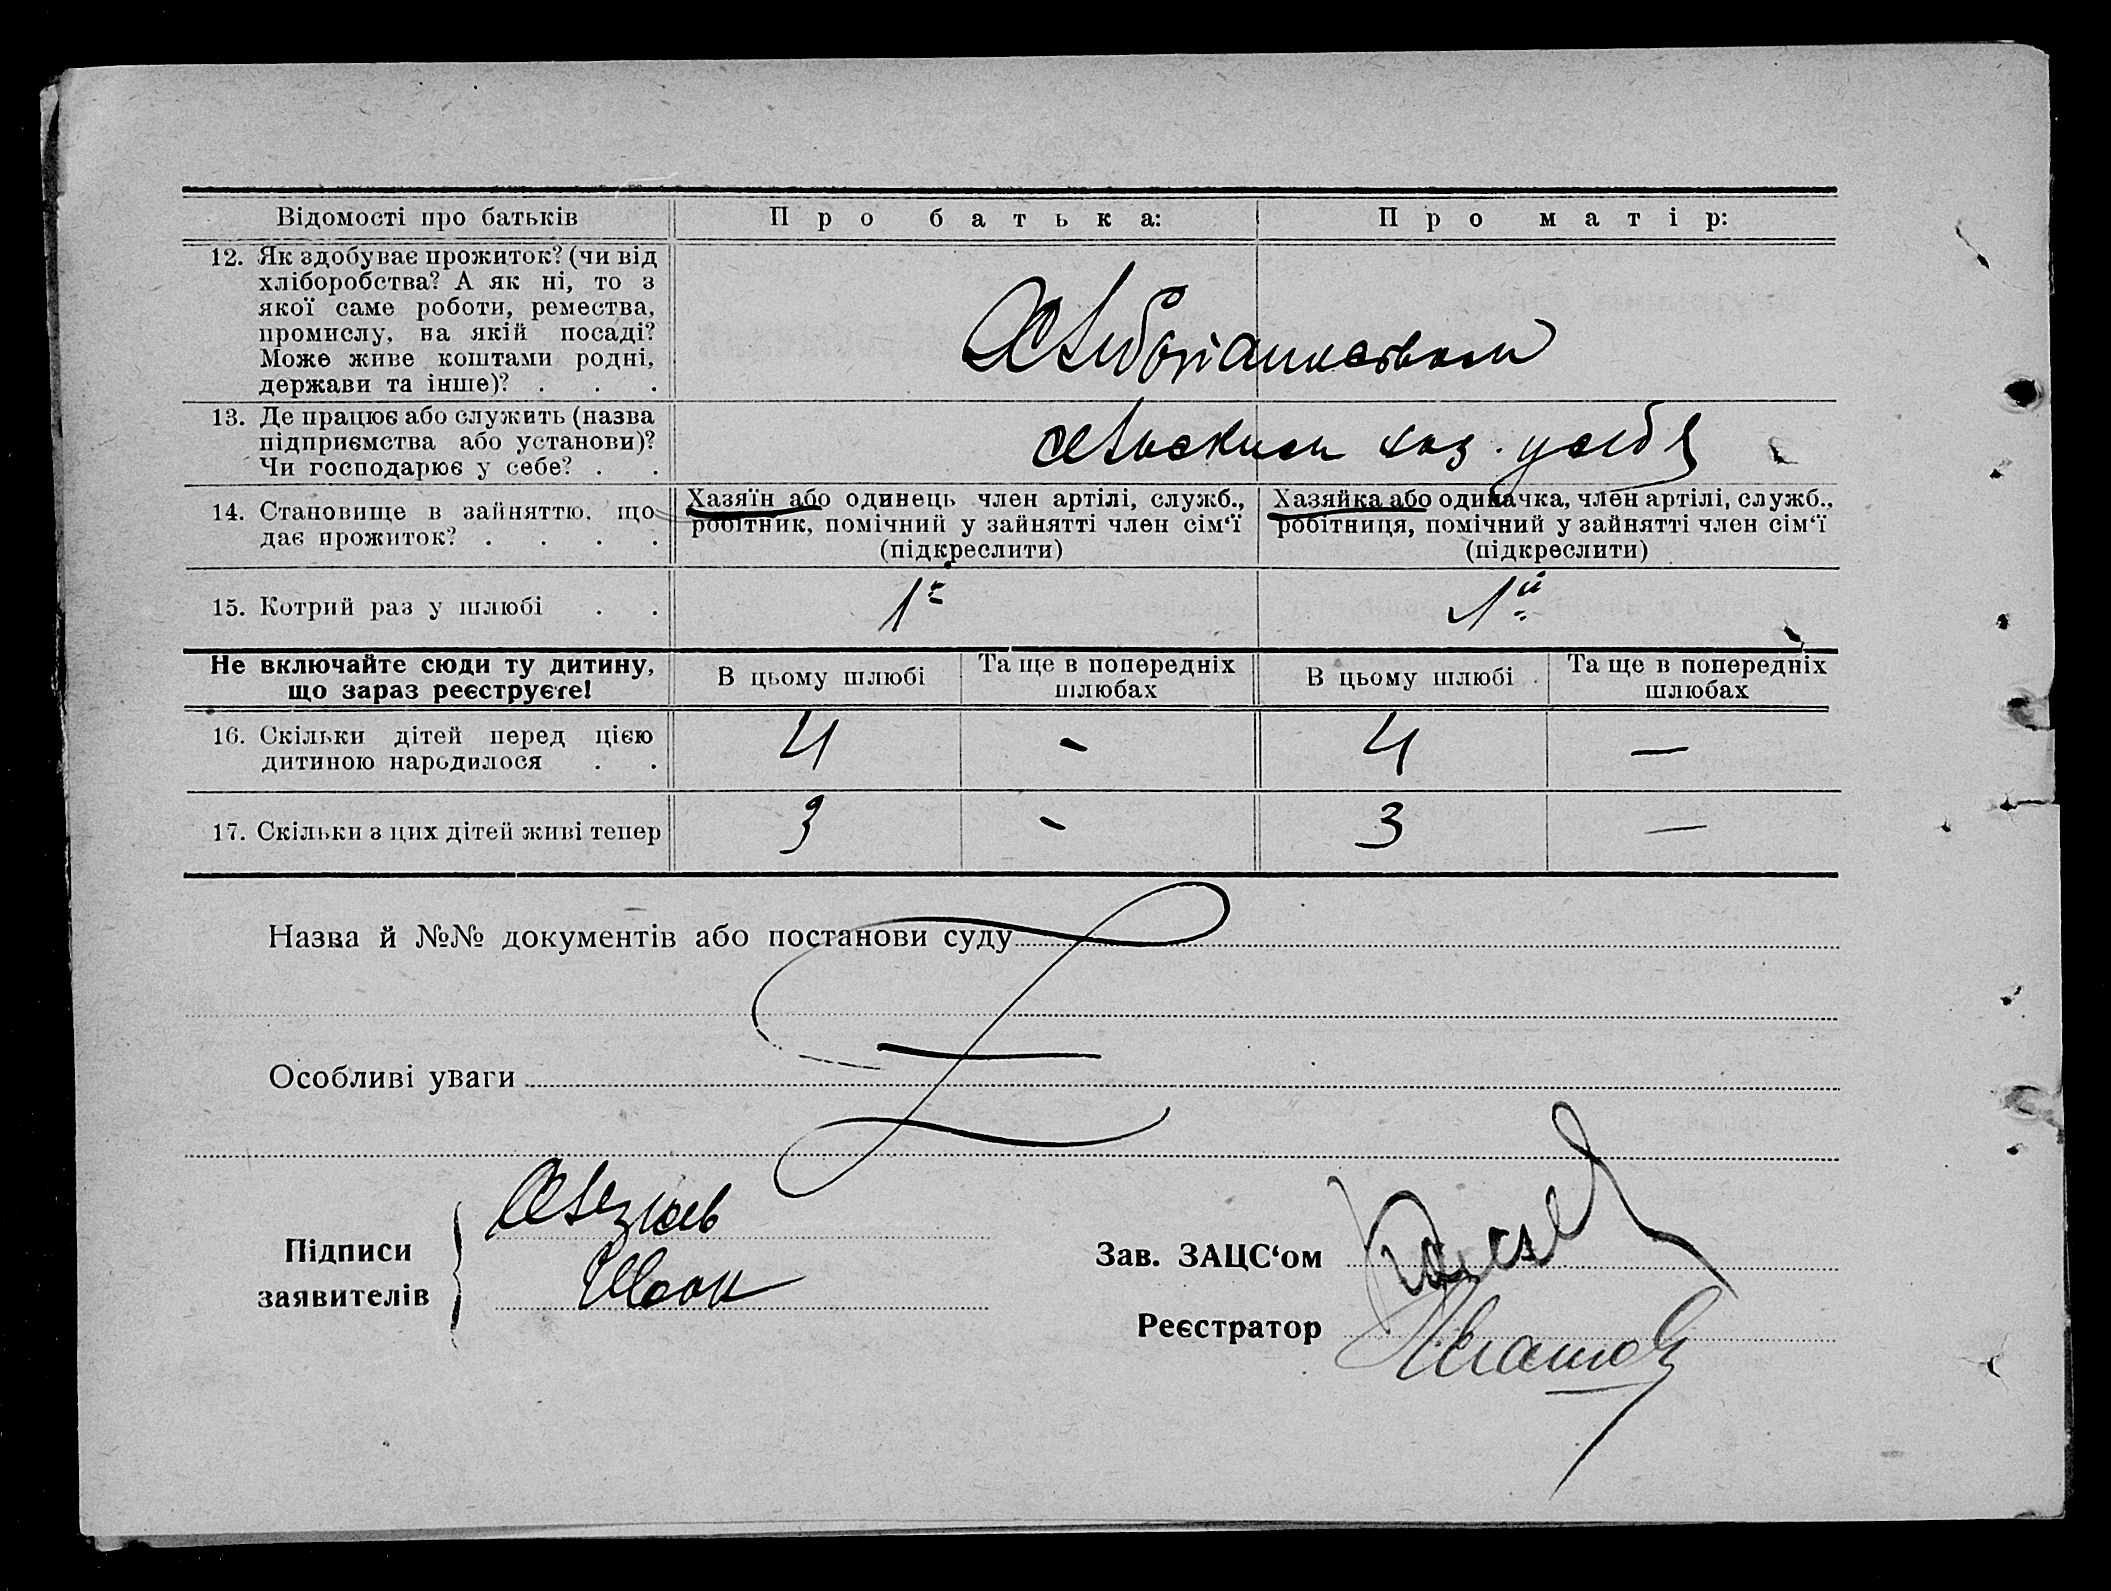 Відомості про батьків
Про батька:
Про матір:
12. Як здобуває прожиток? (чи від
хліборобства? А як ні, то з
якої саме роботи, ремества,
промислу, на якій посаді?
Може живе коштами родні,
держави та інше)? . . .
13. Де працює або служить (назва
підприємства або установи)?
Чи господарює у себе? . .
14. Становище в зайняттю, що
дає прожиток? . . . .
Хазяїн або одинець член артілі, служб.,
робітник, помічний у зайнятті член сім‘ї
(підкреслити)
Хазяйка або одиначка, член артілі, служб.,
робітниця, помічний у зайнятті член сім‘ї
(підкреслити)
15. Котрий раз у шлюбі . .
1й
1й
Не включайте сюди ту дитину,
що зараз реєструєте!
В цьому шлюбі
Та ще в попередніх
шлюбах
В цьому шлюбі
Та ще в попередніх
шлюбах
16. Скільки дітей перед цією
дитиною народилося . .
4
-
4
—
17. Скільки з цих дітей живі тепер
3
-
3
—
Назва й №№ документів або постанови суду
Особливі уваги
Підписи
заявителів
Зав. ЗАЦС‘ом
Реєстратор